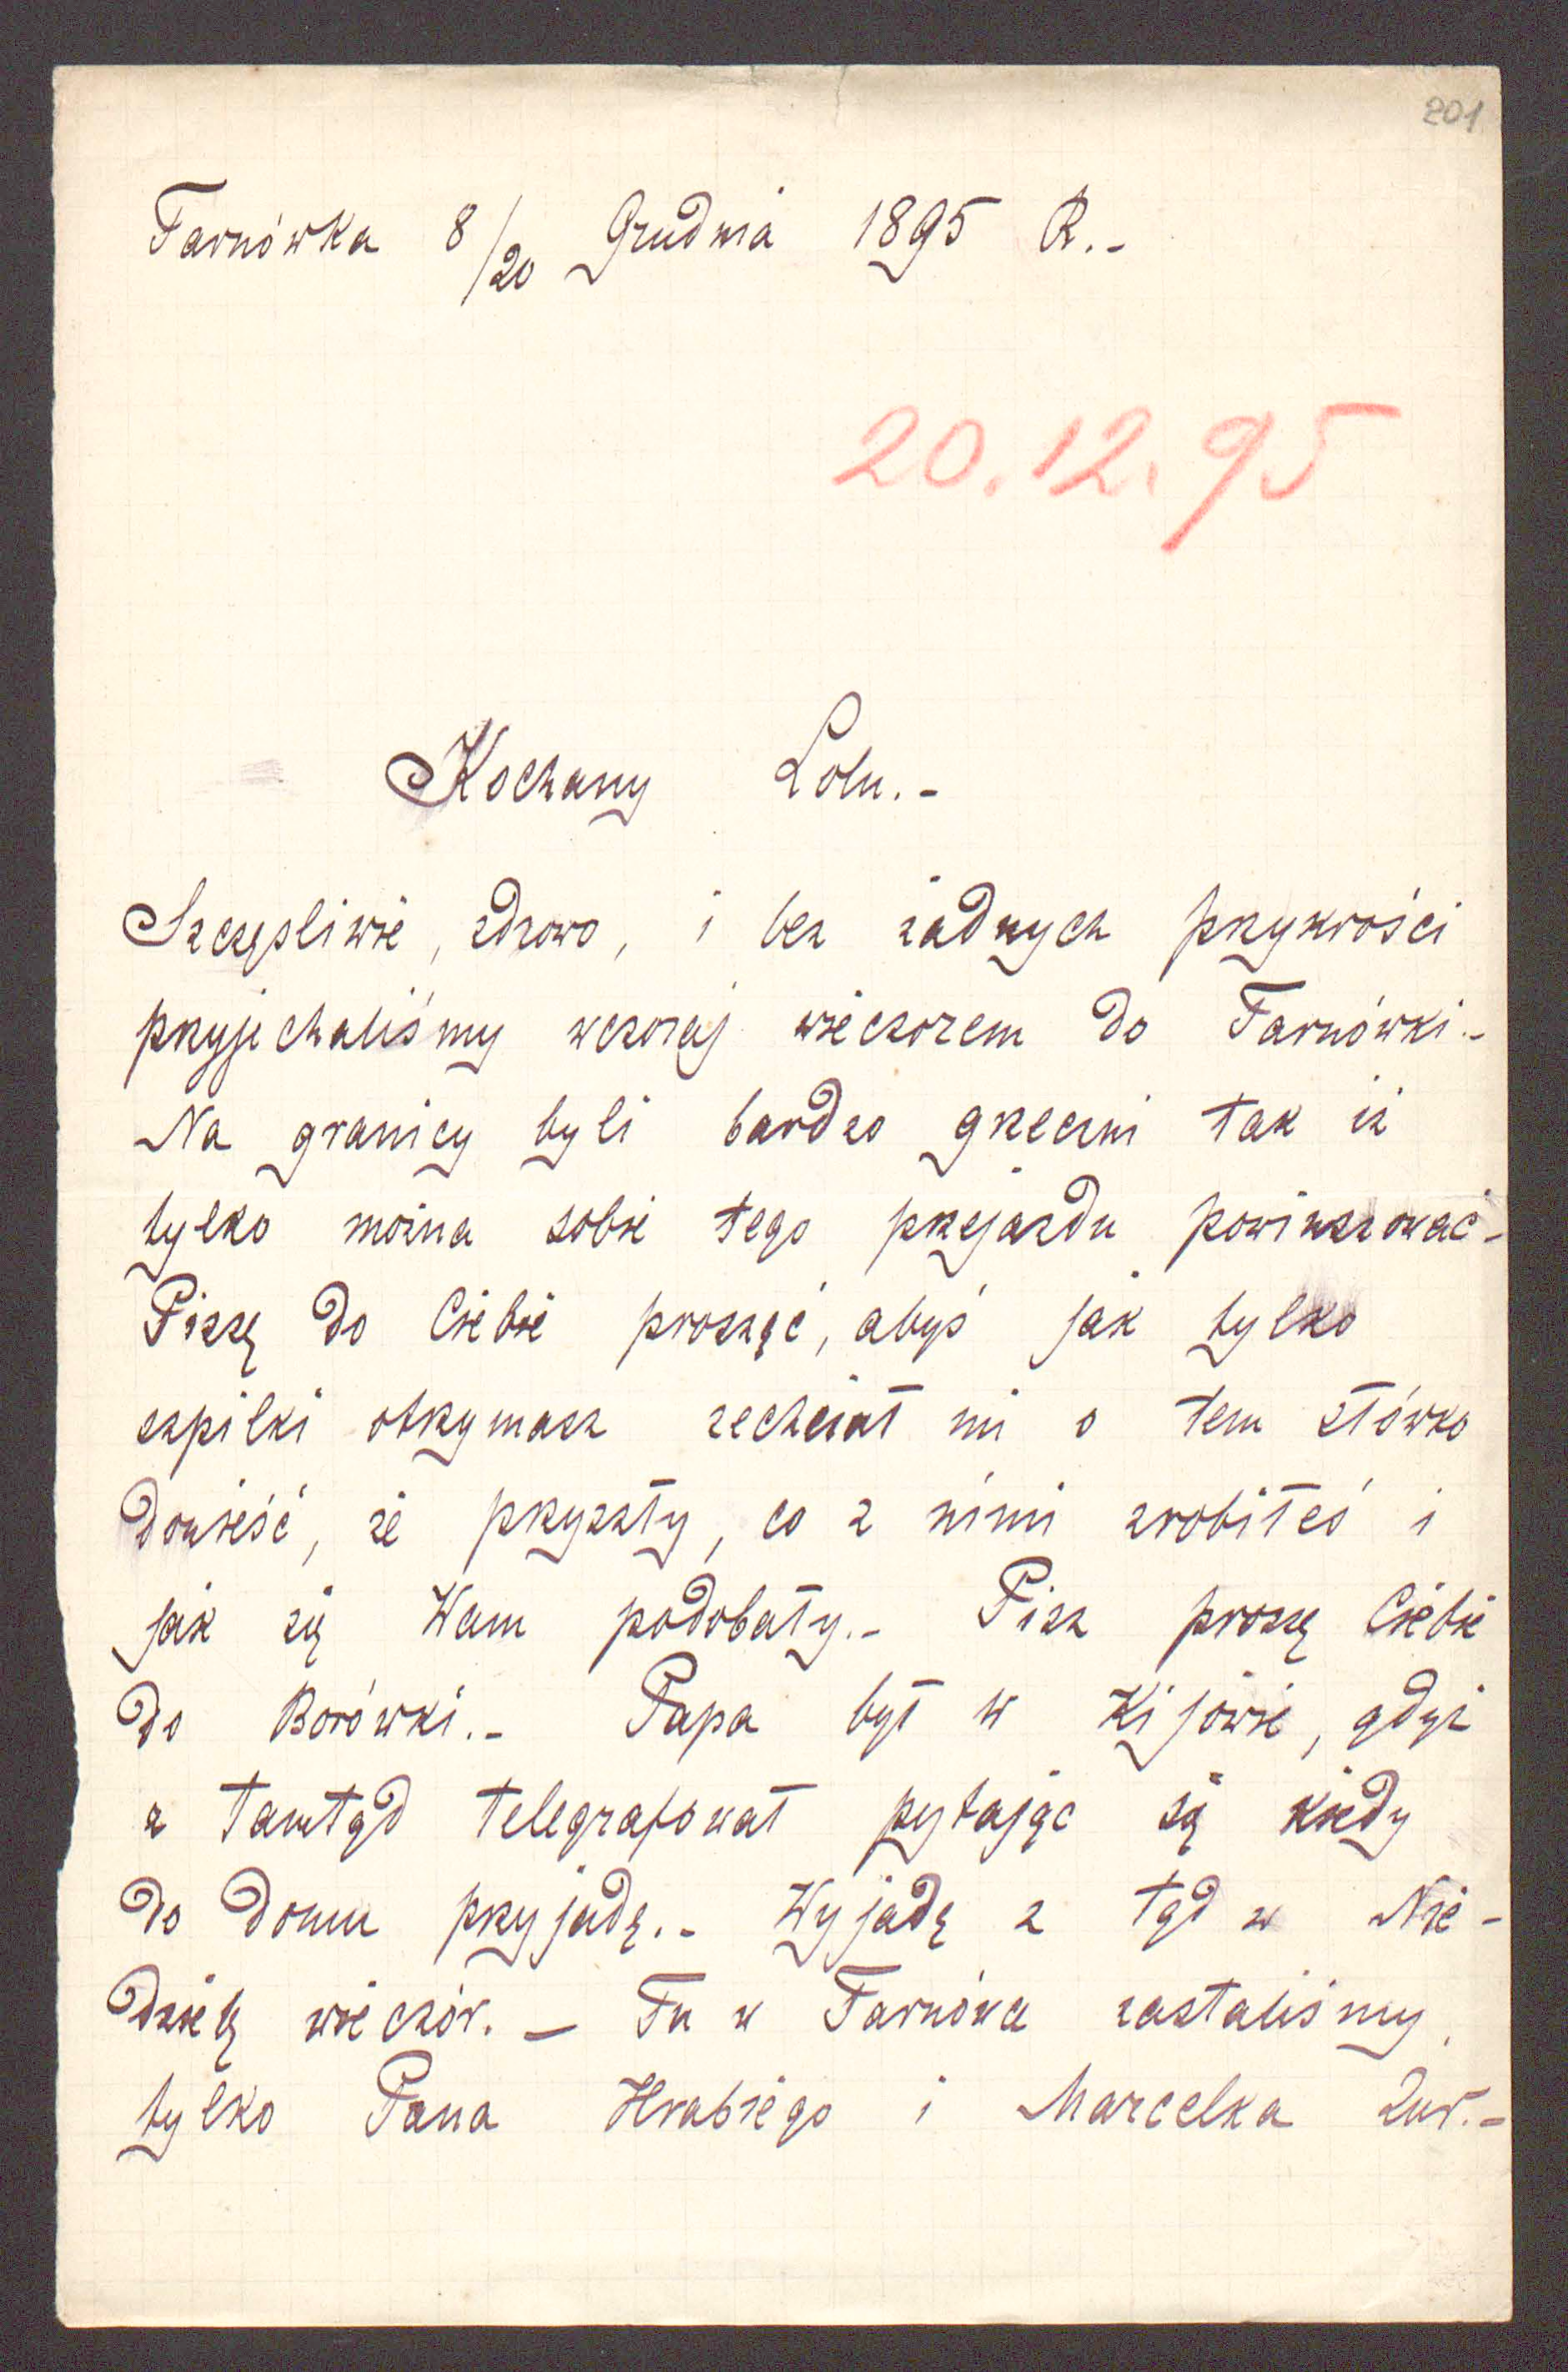 201
Tarnówka 8/20 Grudnia 1895 R.-
20.12.95
Kochany Lolu.-
Szczęśliwie, zdrowo, i bez żadnych przykrości
przyjechaliśmy wczoraj wieczorem do Tarnówki.-
Na granicy byli bardzo grzeczni tak iż
tylko można sobie tego przejazdu powinszować-
Piszę do Ciebie prosząć, abyś jak tylko
szpilki otrzymasz zechciał mi o tem słówko
donieść, że przyszły, co z nimi zrobiłeś i
jak się Wam podobały.- Pisz proszę Ciebie
do Borówki.- Papa był w Kijowie, gdyż
z tamtąd telegrafował pytając się kiedy
do domu przyjadę.- Wyjadę z tąd w Nie-
dzielę wieczór. — Tu w Tarnówce zastaliśmy
tylko Pana Hrabiego i Marcelka Żur.-